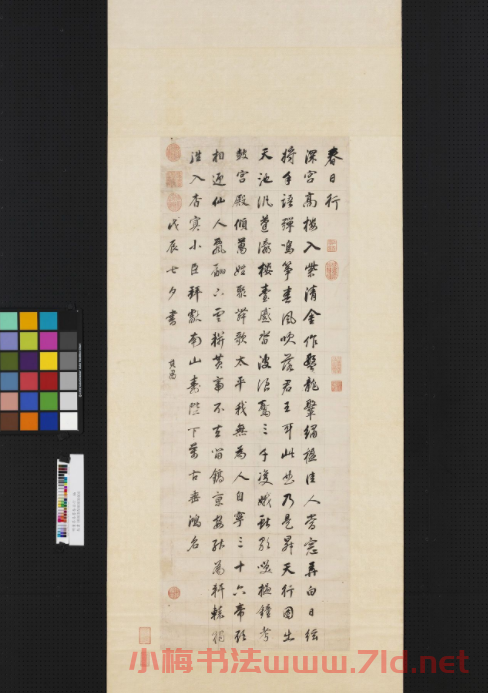 春日行
深宮高樓入紫清金作蛟龍盤繡楹佳人當窓弄白日絃
將手語彈鳴箏春風吹落君王耳此曲乃是昇天行因出
天池汎蓬瀛樓臺蹙沓波浪驚三千雙蛾獻歌笑撾鐘考
鼓宮殿傾萬姓聚舞歌太平我無為人自寧三十六帝欲
相迎仙人飄翩下雲軿黃帝不去留鎬京安能為軒轅獨
往入杳冥小臣拜獻南山壽陛下萬古垂鴻名
戊辰七夕書
其昌
小梅书法www.7ld.net